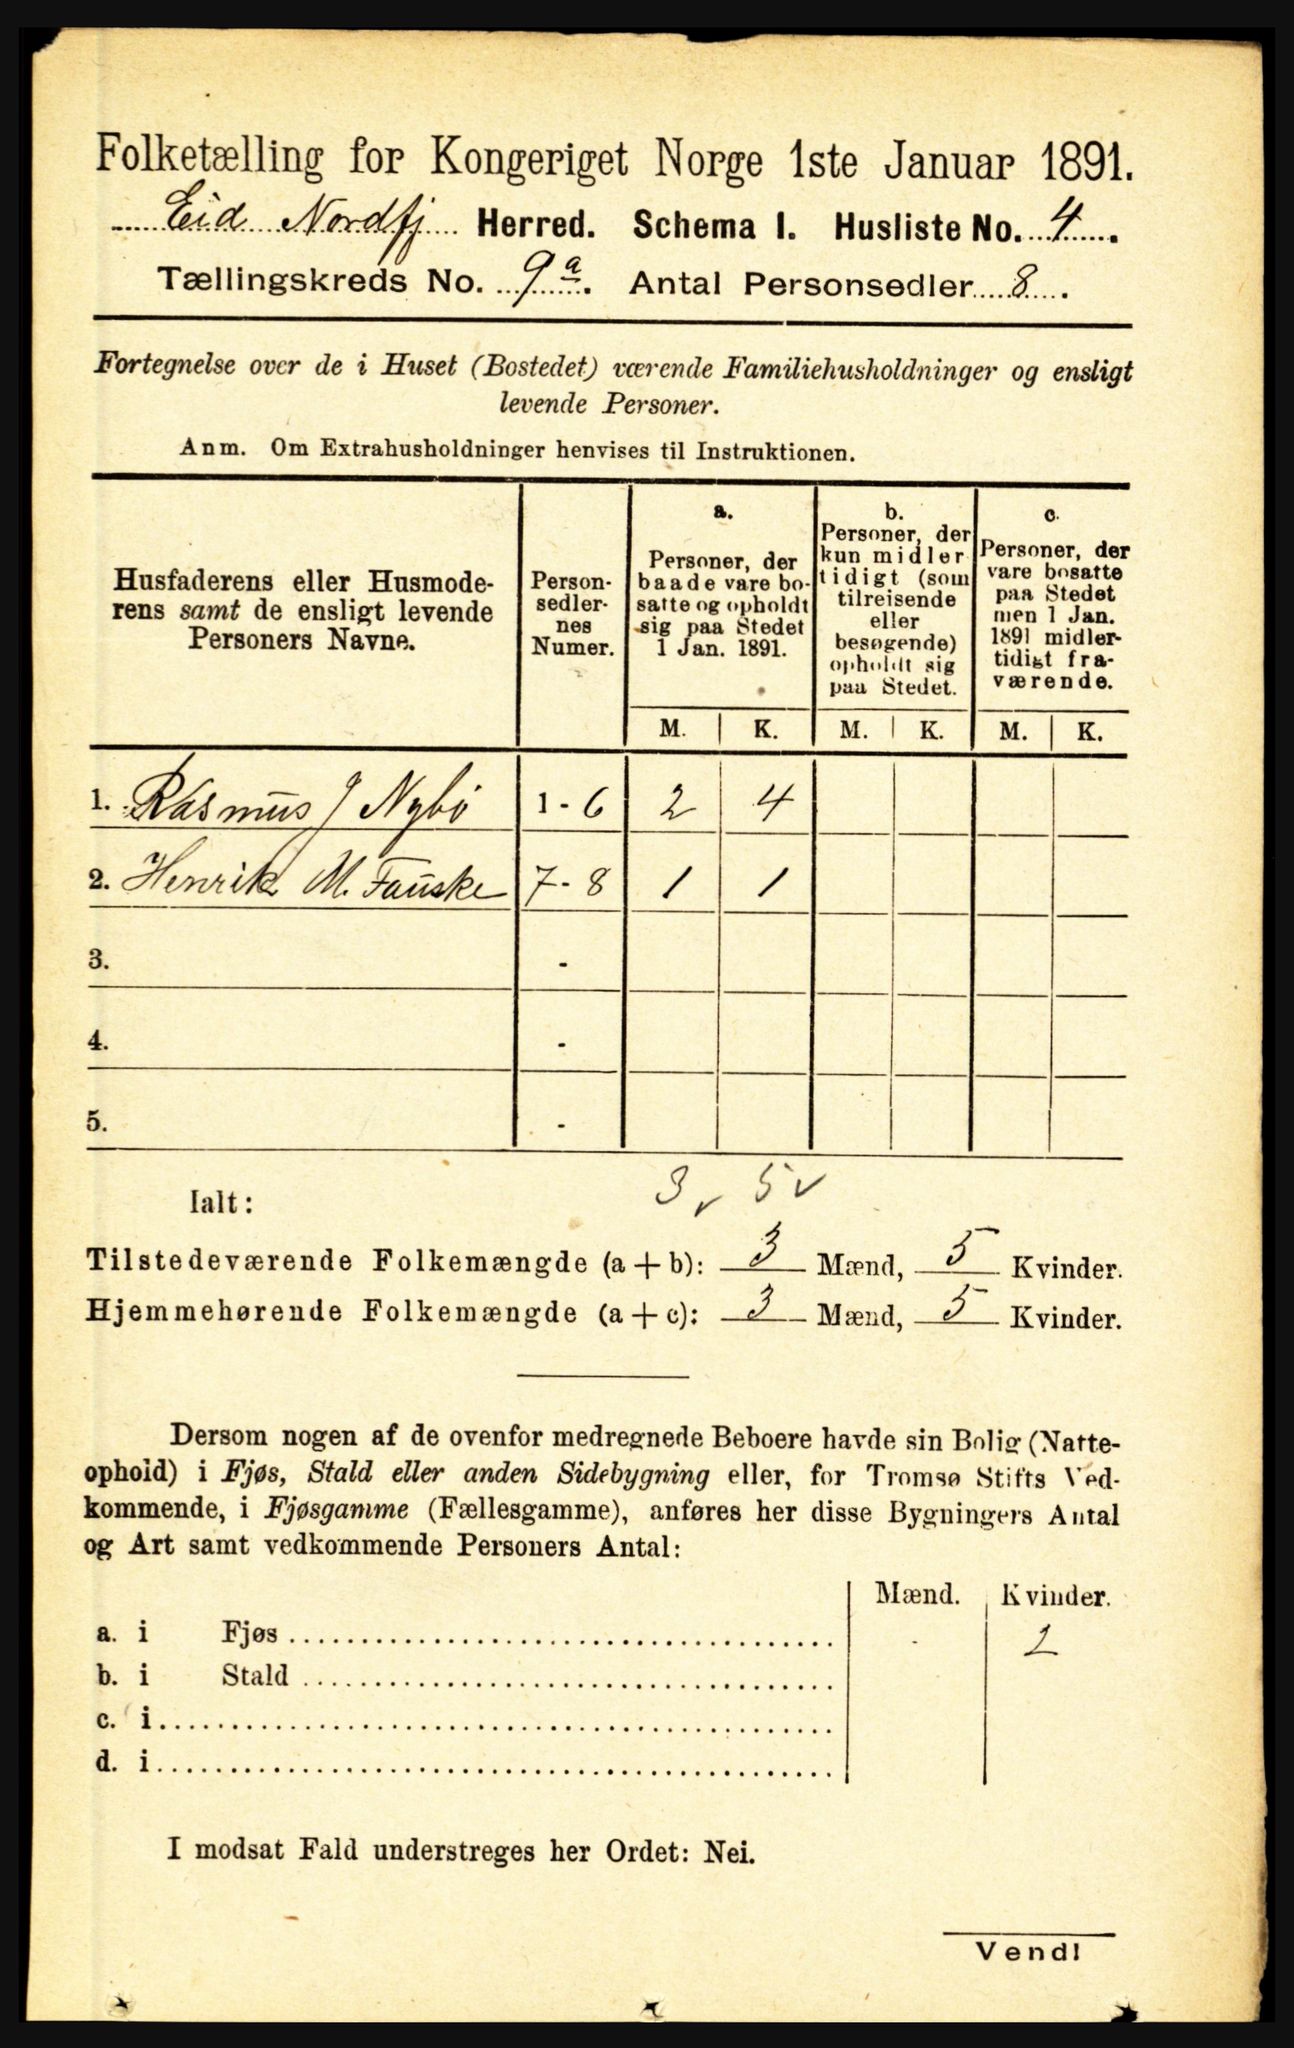 Folketælling for Kongeriget Norge 1ste Januar 1891.
Eid Nordfj Herred. Schema I. Husliste No. 4.
Tællingskreds No. 9a. Antal Personsedler 8.
Fortegnelse over de i Huset (Bostedet) værende Familiehusholdninger og ensligt
levende Personer.
Anm. Om Extrahusholdninger henvises til Instruktionen.
Husfaderens eller Husmode-
rens samt de ensligt levende
Personers Navne.
Person-
sedler-
nes
Numer.
a.
Personer, der
baade vare bo-
satte og opholdt
sig paa Stedet
1 Jan. 1891.
b.
Personer, der
kun midler
tidigt (som
tilreisende
eller
besøgende)
opholdt sig
paa Stedet.
c.
Personer, der
vare bosatte
paa Stedet
men 1 Jan.
1891 midler-
tidigt fra-
værende.
M. K. M. K. M. K.
1. Rasmus J Nybö 1 - 6 2 4
2. Henrik M. Fauske 7 - 8 1 1
3. -
4. -
5. -
3 v 5 v
Ialt:
Tilstedeværende Folkemængde (a + b): 3 Mænd, 5 Kvinder.
Hjemmehørende Folkemængde (a + c): 3 Mænd, 5 Kvinder.
Dersom nogen af de ovenfor medregnede Beboere havde sin Bolig (Natte-
ophold) i Fjøs, Stald eller anden Sidebygning eller, for Tromsø Stifts Ved-
kommende, i Fjøsgamme (Fællesgamme), anføres her disse Bygningers Antal
og Art samt vedkommende Personers Antal:
Mænd. Kvinder.
a. i Fjøs
b. i Stald
c. i
d. i
I modsat Fald understreges her Ordet: Nei.
Vend!